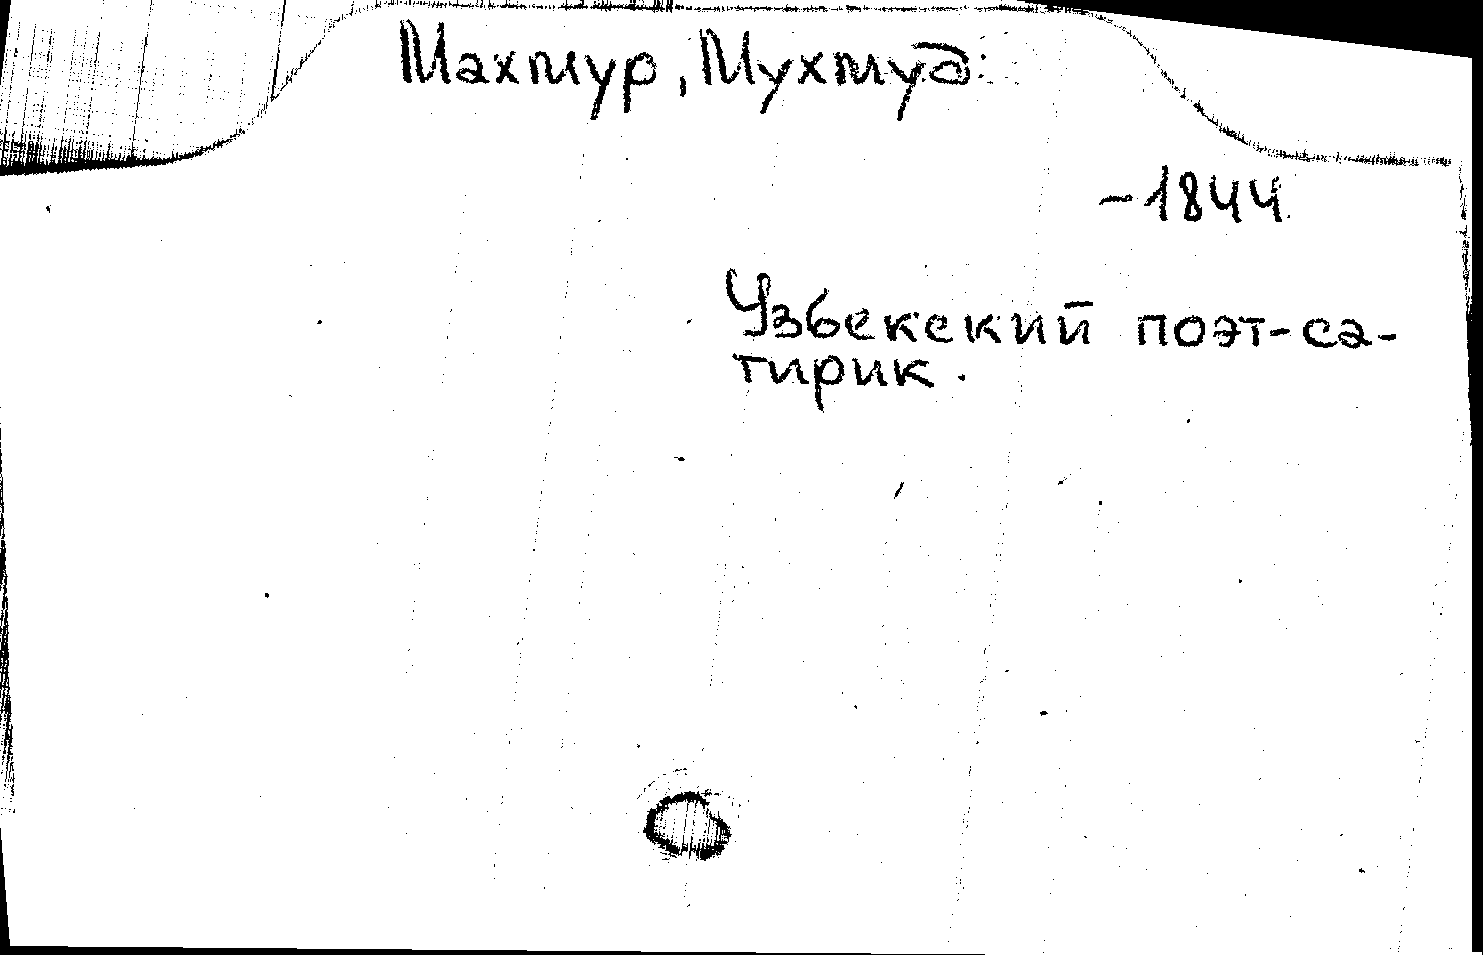 Махмур, Мухмуд.
-1844
Узбекский поэт-са-
тирик.